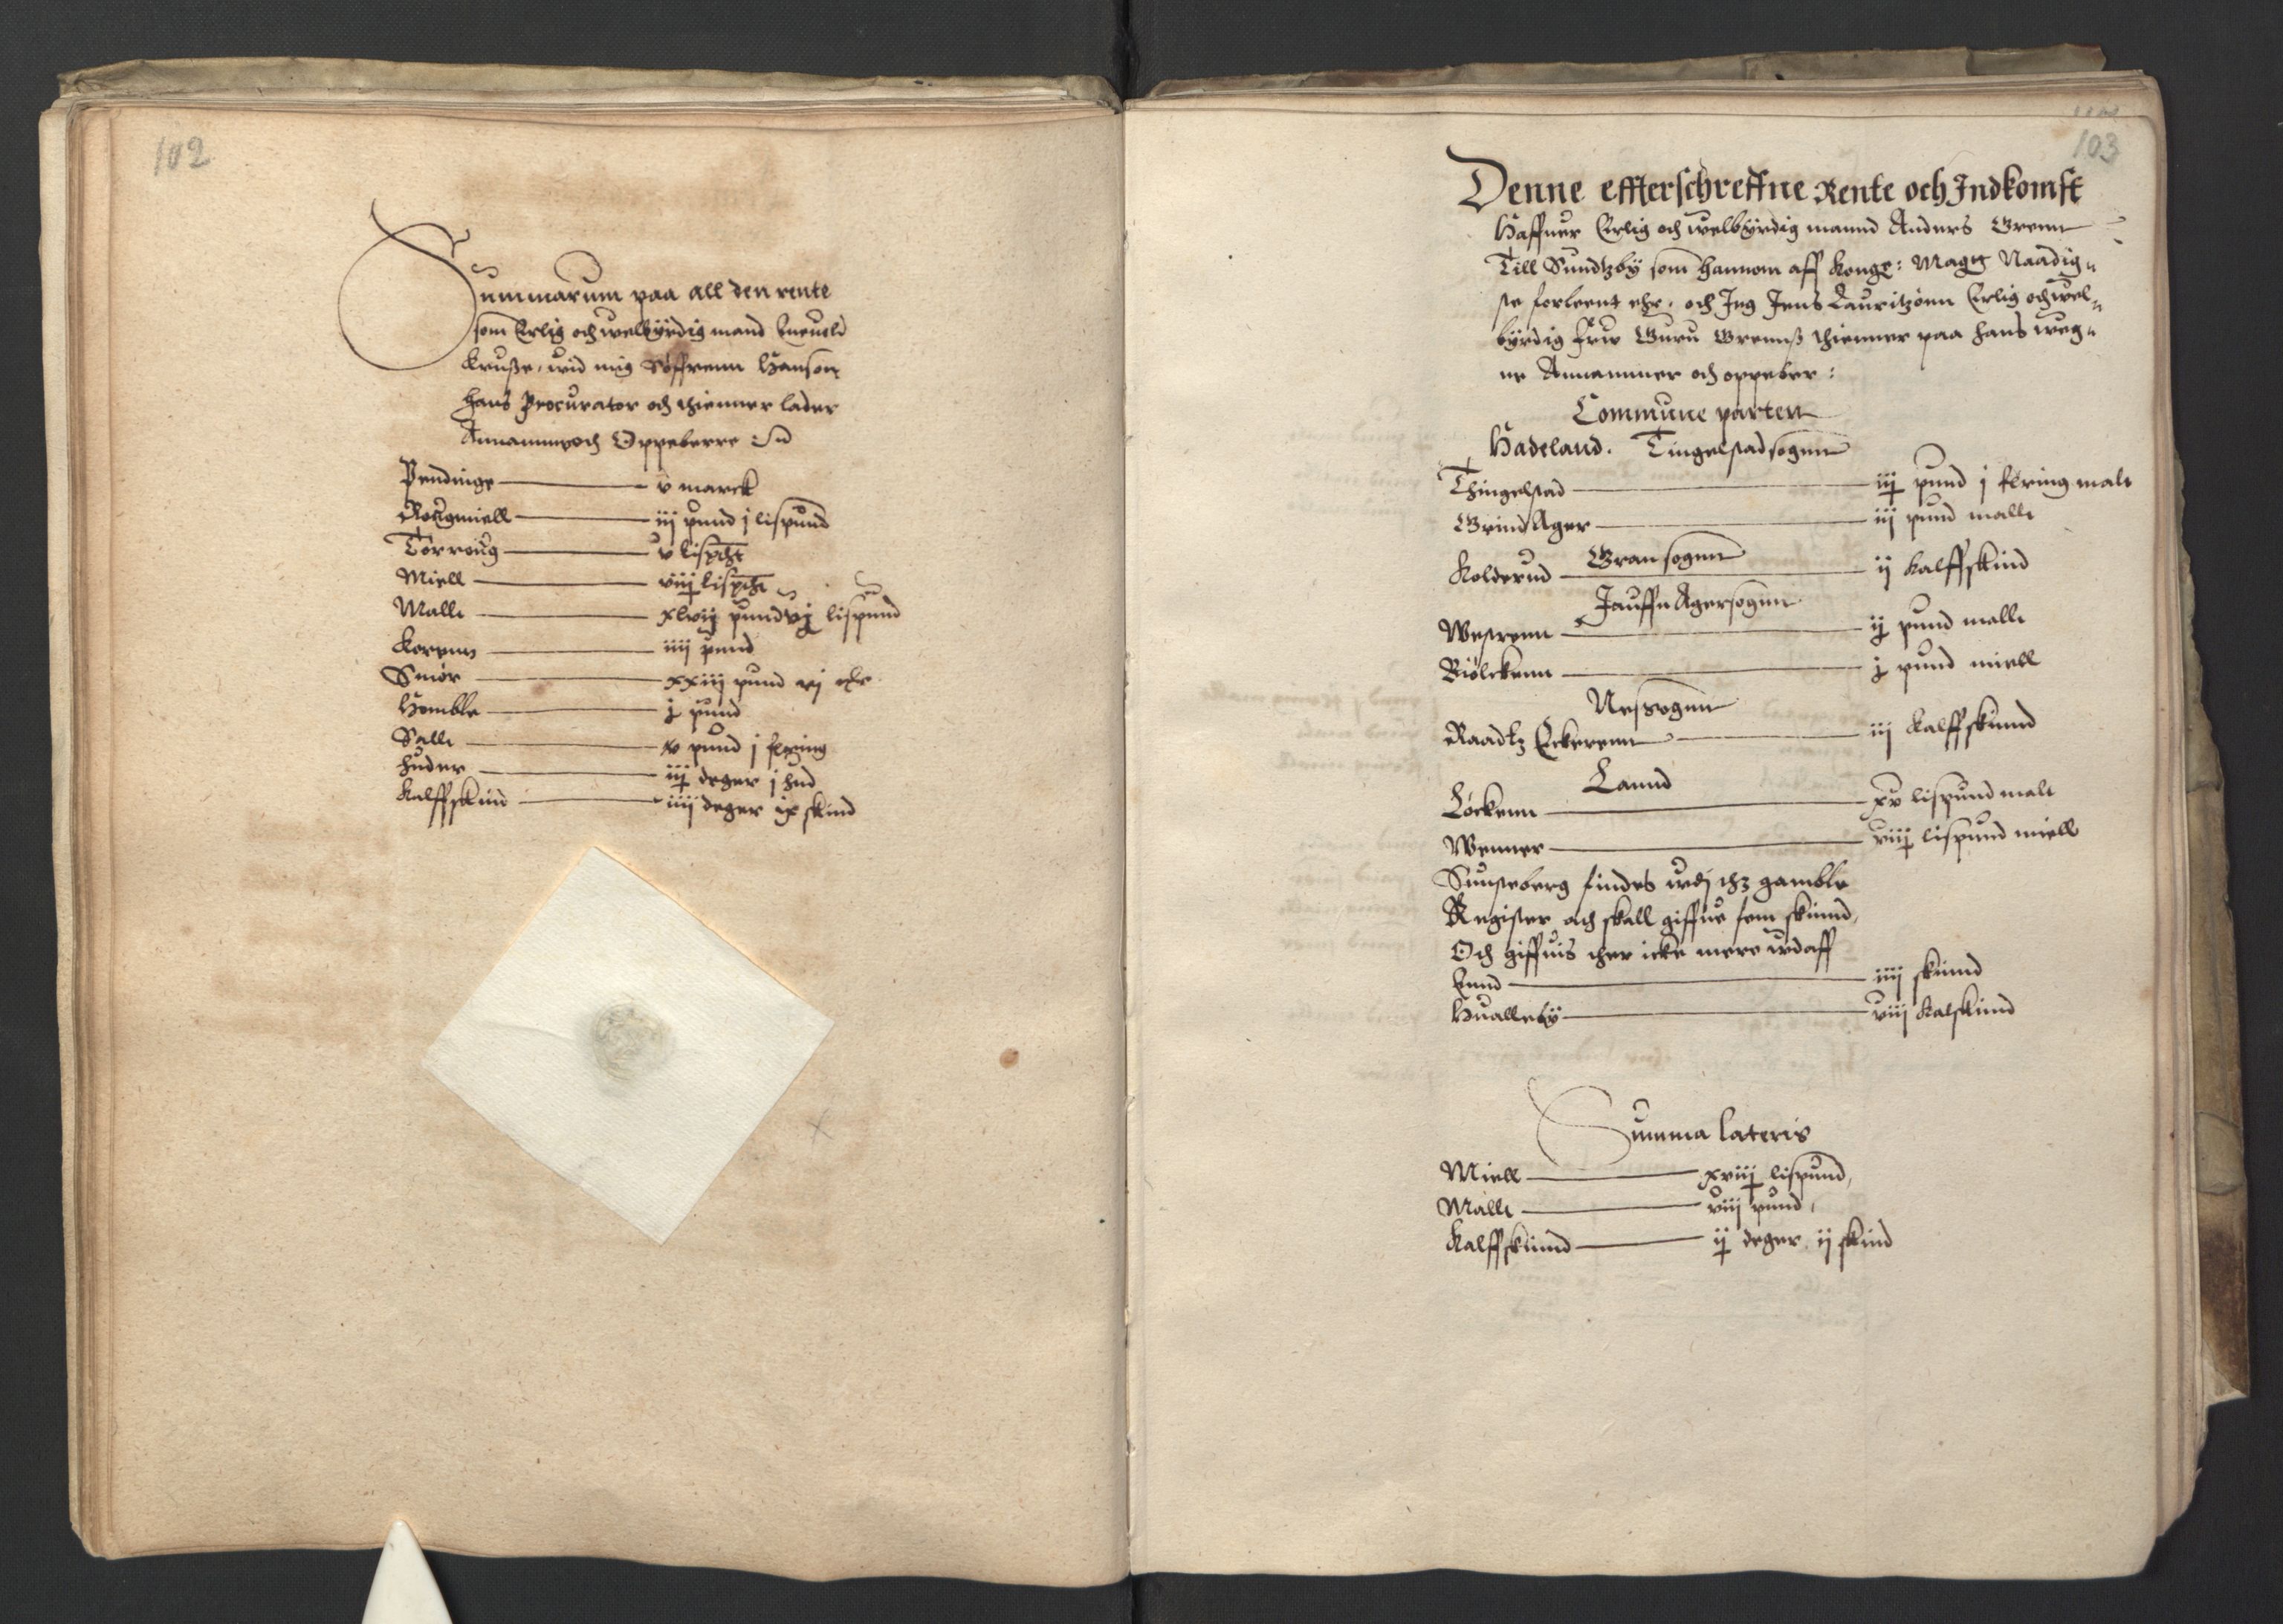 102
Summarum paa all den rente
som Erlig och welbyrdig mand Eneuold
Krusse, wid mig Søffrenn Hanson
hans Procurator och thienner lader
Annamme och Oppeberre
Pendinge v marck
Rougmiell iij pund j lispund
Tørroug v lispund
Miell viij lispund
Malt xlvij pund vj lispund
Korenn iiij pund
Smør xxiij pund vj
Homble j pund
Sallt xv pund j fering
Huder iij deger j hud
Kalffskind iiij deger ix skind
103
Denne effterschreffne Rente och Indkomst
Haffuer Erlig och welbyrdig mannd Anders Grenn
Till Sundtzby som hannom aff Konge: Magtt Naadig„
ste forleent ehr, och Jeg Jens Lauritzønn Erlig och wel„
byrdig frw Guru Grennss thienner paa hans weg„
ne Annammer och oppeber:
Commune parten
Hadeland. Tingelstad sogenn
Thingelstad iij pund j fering malt
Grind Ager iij pund mallt
Gran sogenn
Kolderud ij kalffskind
Jauffn Ager sogenn
Westrenn ij pund mallt
Biølckenn j pund miell
Nes sogenn
Raadtz Eckerenn iij Kalffskinnd
Lannd
Løckenn xv lispund malt
Wenner viij lispund miell
Sunseberg findes wdj thz gamble
Register och skall giffue fem skinnd,
Och giffuis ther icke mere wdaff
Lund iiij skinnd
Hualleby viij kalskinnd
Summa lateris
Miell xviij lispund,
Mallt viij pund,
Kalffskinnd ij deger ij skind